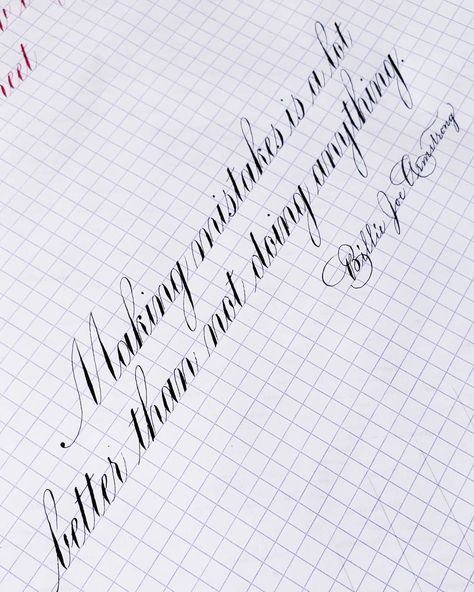 eet
Making mistakes is a lot
better than not doing anything.
Billie Joe Armstrong